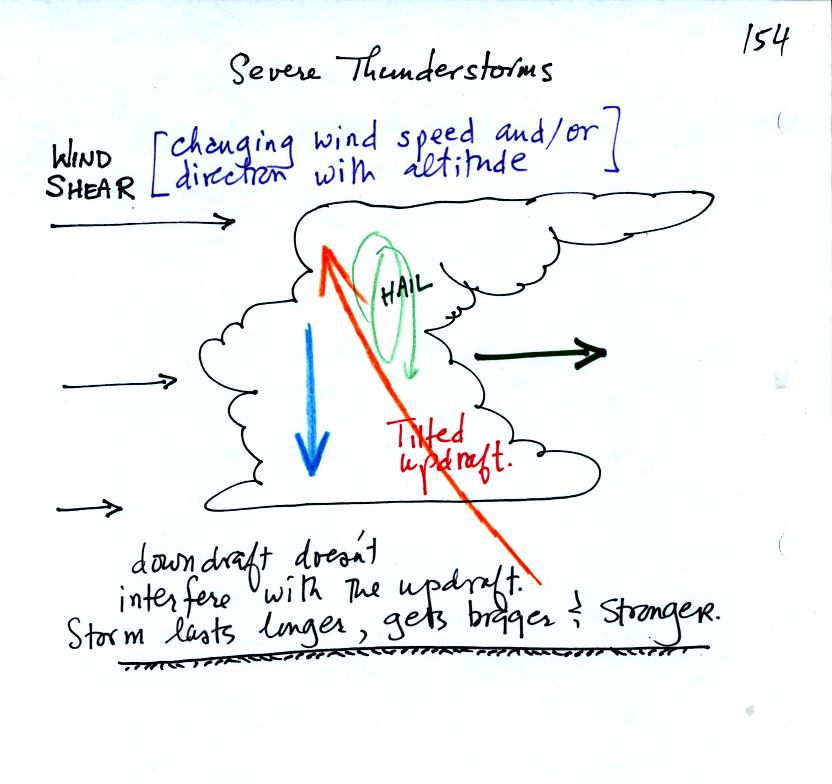 154
Severe Thunderstorms
WIND
SHEAR
[changing wind speed and/or
direction with altitude]
HAIL
Tilted
updraft.
downdraft doesn't
interfere with the updraft.
Storm lasts longer, gets bigger & stronger.